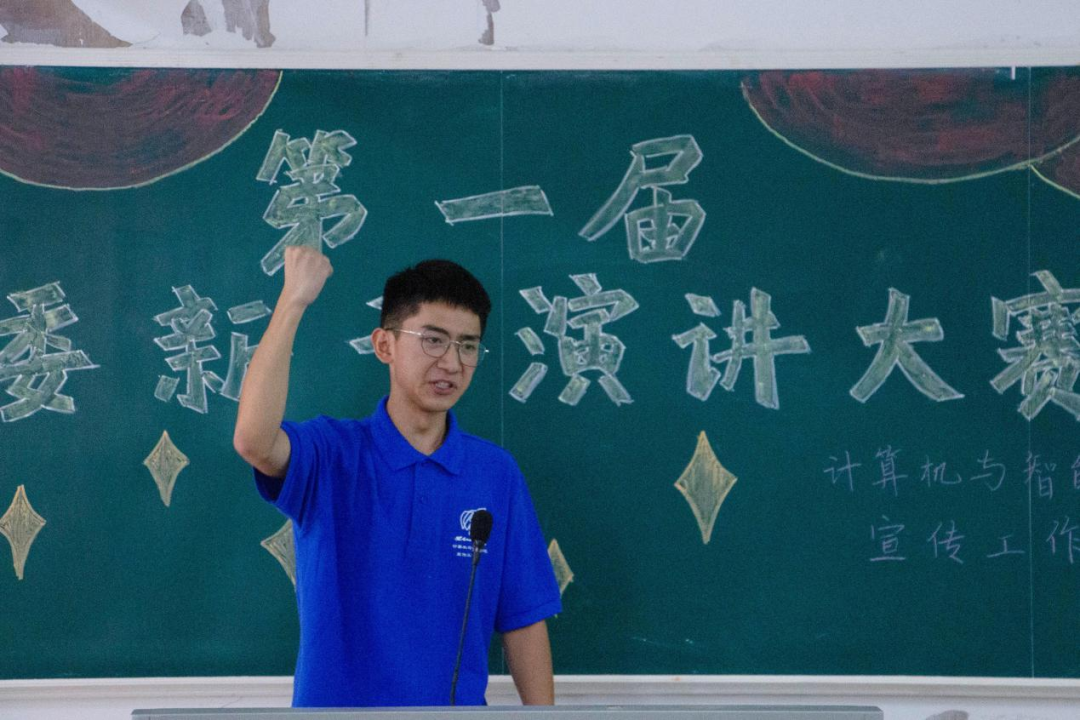 第一届
委新 演讲大赛
计算机与智
宣传工作